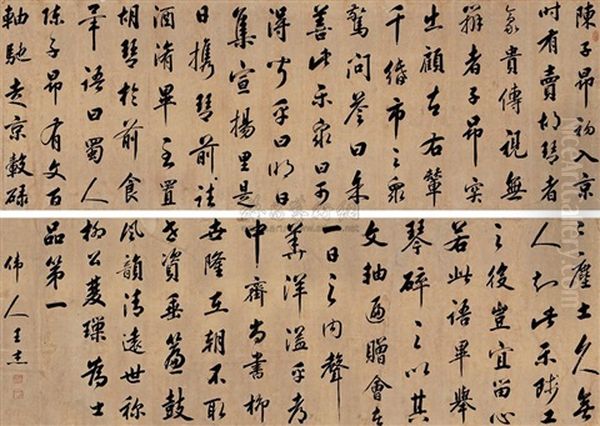 陳子昂初入京
時有賣胡琴者
豪貴傳視無
辨者子昂突
出顧左右輦
千緡市之衆
驚問答曰余
善此樂衆曰可
得聞乎曰明日
集宣揚里是
日攜琴前詣
酒淆畢至置
胡琴於前食
畢語曰蜀人
陳子昂有文百
軸馳走京轂碌
〻塵土久無
人知此樂賤工
之役豈宜留心
若此語畢舉
琴碎之以其
文軸遍贈會者
一日之内聲
華洋溢乎
中齊尚書柳
世隆在朝不取
世資垂簾鼓
風韻清遠世稱
柳公雙璅為士
品第一
偉人王杰